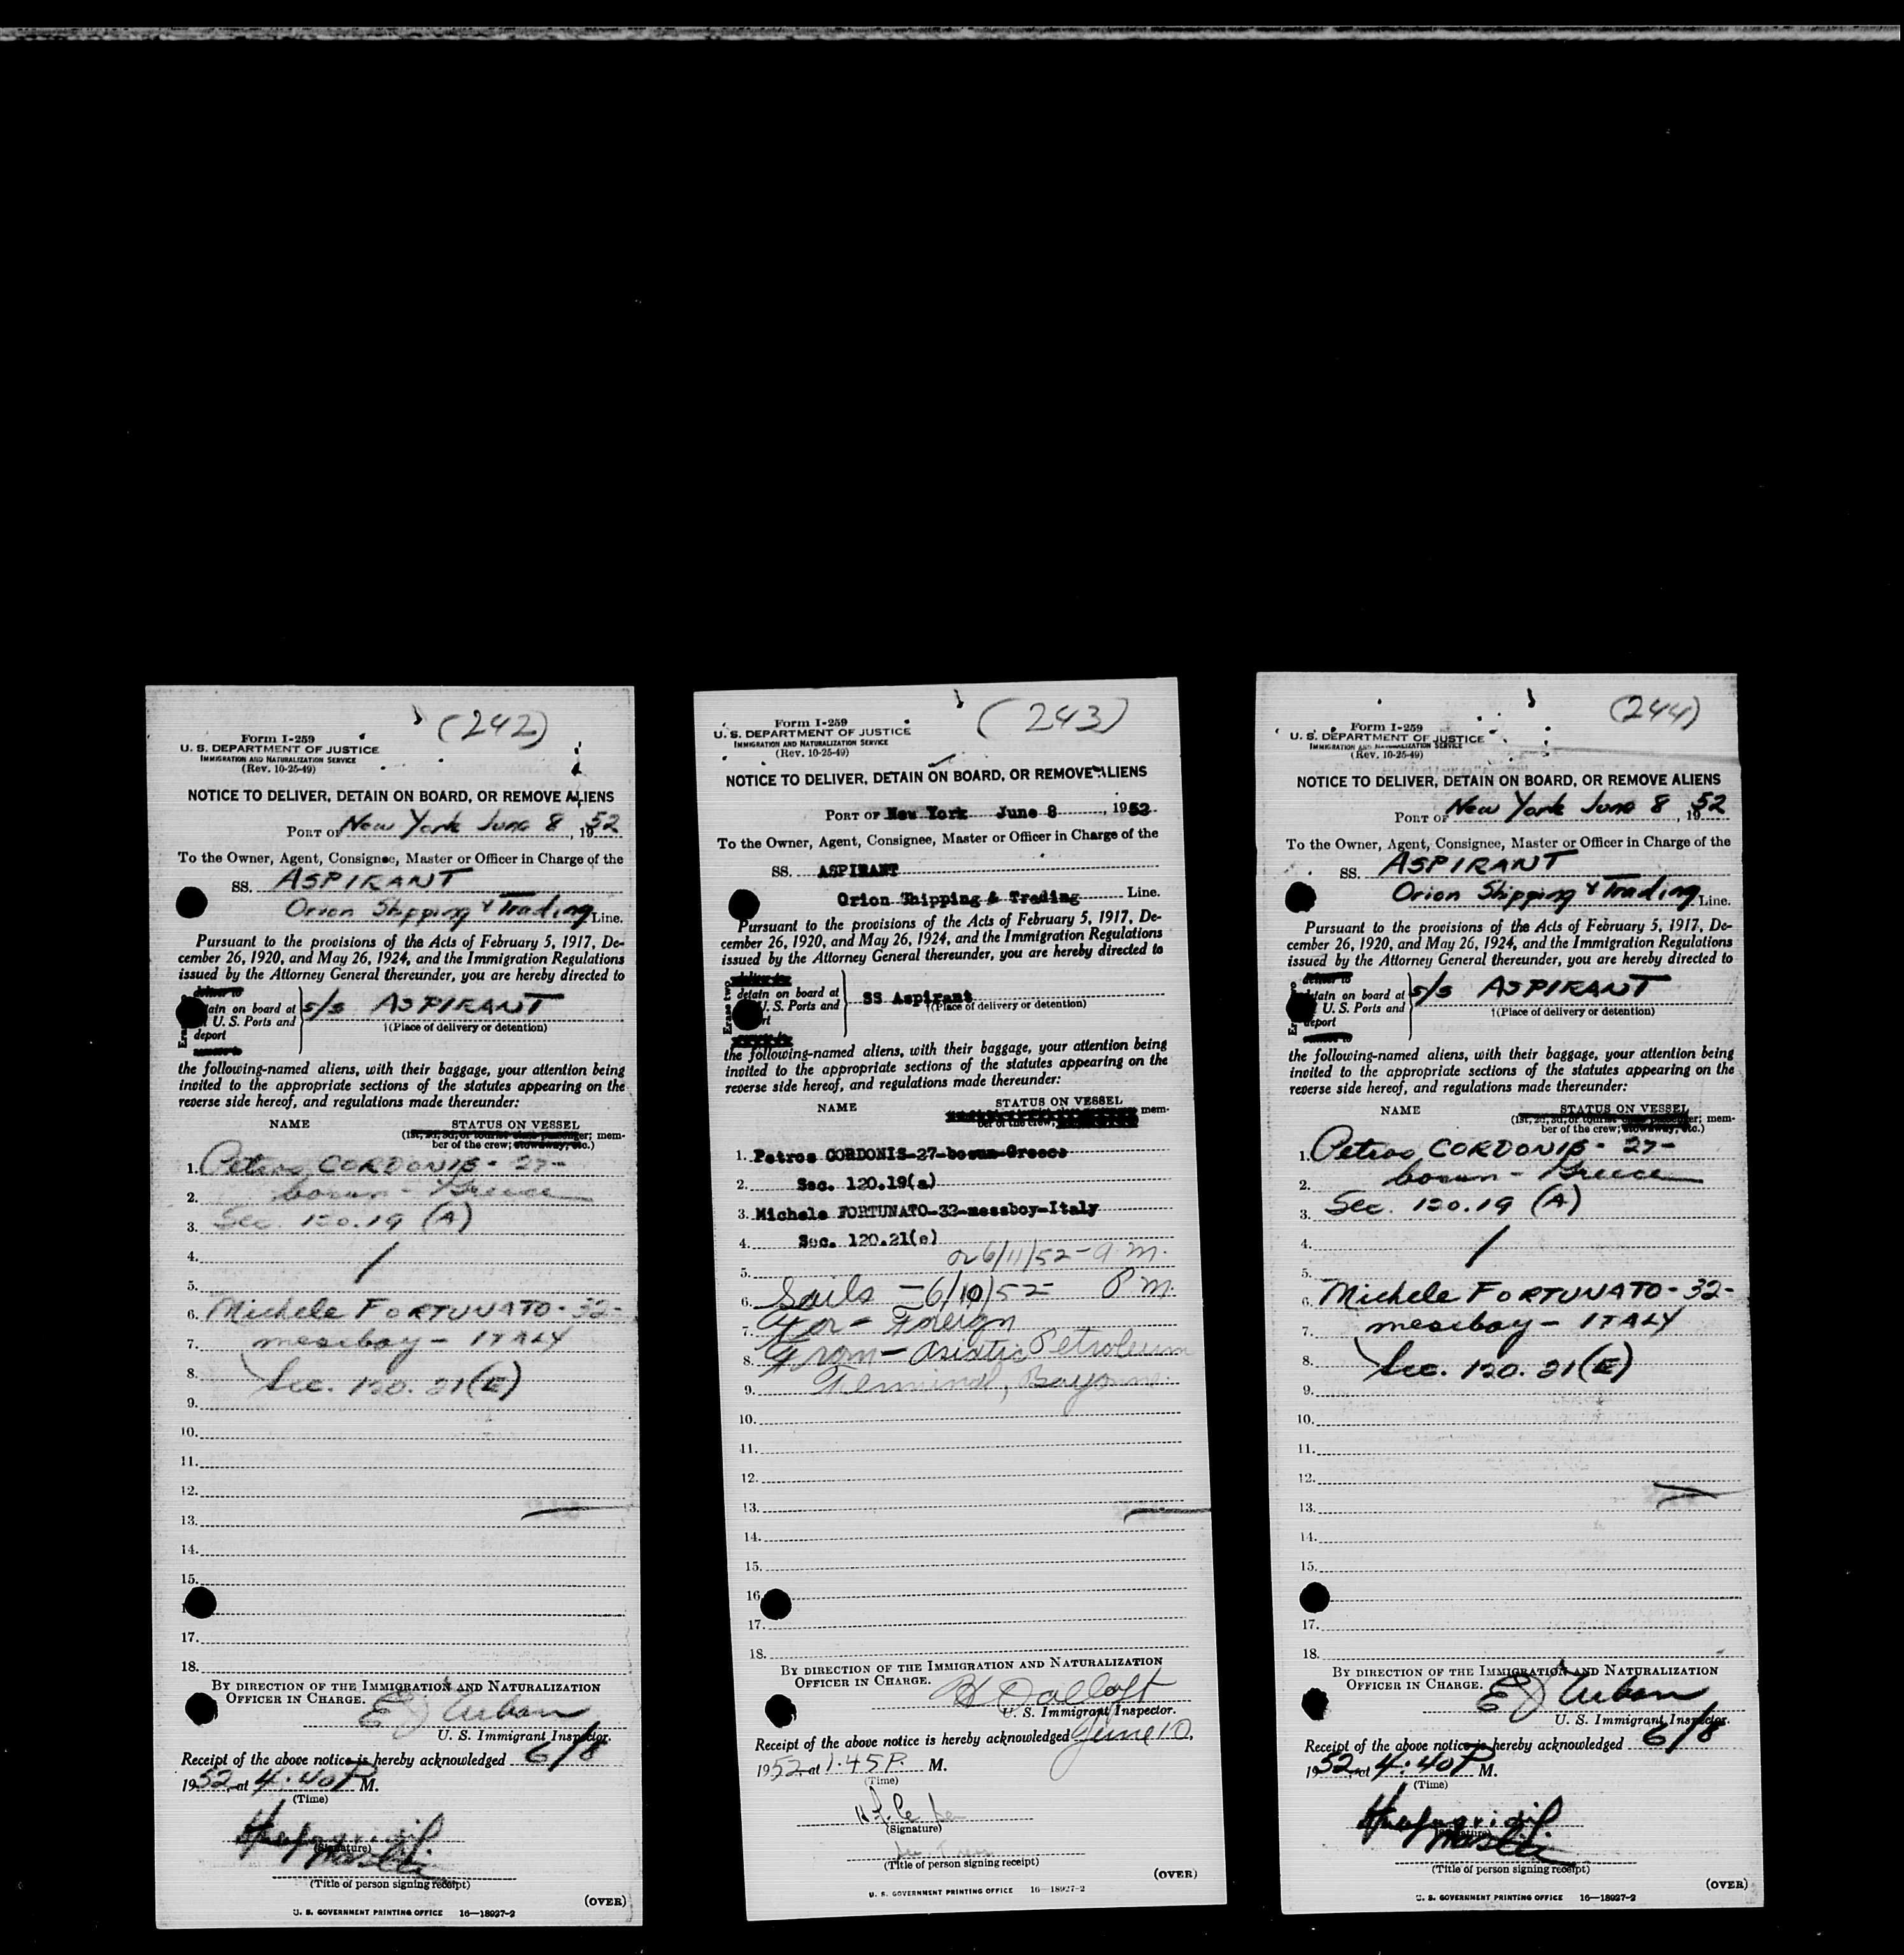 (242)
Form I-259
U. S. DEPARTMENT OF JUSTICE
IMMIGRATION AND NATURALIZATION SERVICE
(Rev. 10-25-49)
NOTICE TO DELIVER, DETAIN ON BOARD, OR REMOVE ALIENS
PORT OF New York June 8, 1952
To the Owner, Agent, Consignee, Master or Officer in Charge of the
SS. ASPIRANT
Orion Shipping & Trading Line.
Pursuant to the provisions of the Acts of February 5, 1917, De-
cember 26, 1920, and May 26, 1924, and the Immigration Regulations
issued by the Attorney General thereunder, you are hereby directed to
deliver to
tain on board at
U. S. Ports and
deport
remove to
s/s ASPIRANT
†(Place of delivery or detention)
the following-named aliens, with their baggage, your attention being
invited to the appropriate sections of the statutes appearing on the
reverse side hereof, and regulations made thereunder:
NAME STATUS ON VESSEL
(1st, 2d, 3d, or tourist class passenger; mem-
ber of the crew; stowaway, etc.)
1. Petros CORDONIS - 27 -
2. bosun - Greece
3. Sec. 120.19 (A)
4. /
5.
6. Michele FORTUNATO - 32 -
7. messboy - ITALY
8. Sec. 120.21 (E)
9.
10.
11.
12.
13.
14.
15.
17.
18.
BY DIRECTION OF THE IMMIGRATION AND NATURALIZATION
OFFICER IN CHARGE.
E J Urban
U. S. Immigrant Inspector.
Receipt of the above notice is hereby acknowledged 6/8
1952, at 4:40 P M.
(Time)
(Signature)
Master
(Title of person signing receipt)
(OVER)
U. S. GOVERNMENT PRINTING OFFICE 16—18927-2
(243)
Form I-259
U. S. DEPARTMENT OF JUSTICE
IMMIGRATION AND NATURALIZATION SERVICE
(Rev. 10-25-49)
NOTICE TO DELIVER, DETAIN ON BOARD, OR REMOVE ALIENS
PORT OF New York June 8, 1952
To the Owner, Agent, Consignee, Master or Officer in Charge of the
SS. ASPIRANT
Orion Shipping & Trading Line.
Pursuant to the provisions of the Acts of February 5, 1917, De-
cember 26, 1920, and May 26, 1924, and the Immigration Regulations
issued by the Attorney General thereunder, you are hereby directed to
Erase two
detain on board at
U. S. Ports and
rt
SS Aspirant
†(Place of delivery or detention)
the following-named aliens, with their baggage, your attention being
invited to the appropriate sections of the statutes appearing on the
reverse side hereof, and regulations made thereunder:
NAME STATUS ON VESSEL
mem-
ber of the crew;
1. Petros CORDONIS-27-bosun-Greece
2. Sec. 120.19(a)
3. Michele FORTUNATO-32-messboy-Italy
4. Sec. 120.21(e)
5. or 6/11/52 - a.m.
6. Sails - 6/10/52 - P.M.
7. For - Foreign
8. From - Asiatic Petroleum
9. Terminal, Bayonne.
10.
11.
12.
13.
14.
15.
16.
17.
18.
BY DIRECTION OF THE IMMIGRATION AND NATURALIZATION
OFFICER IN CHARGE.
U. S. Immigrant Inspector.
Receipt of the above notice is hereby acknowledged June 10,
1952, at 1:45 P. M.
(Time)
(Signature)
(Title of person signing receipt)
(OVER)
U. S. GOVERNMENT PRINTING OFFICE 16—18927-2
(244)
Form I-259
U. S. DEPARTMENT OF JUSTICE
IMMIGRATION AND NATURALIZATION SERVICE
(Rev. 10-25-49)
NOTICE TO DELIVER, DETAIN ON BOARD, OR REMOVE ALIENS
PORT OF New York June 8, 1952
To the Owner, Agent, Consignee, Master or Officer in Charge of the
SS. ASPIRANT
Orion Shipping & Trading Line.
Pursuant to the provisions of the Acts of February 5, 1917, De-
cember 26, 1920, and May 26, 1924, and the Immigration Regulations
issued by the Attorney General thereunder, you are hereby directed to
deliver to
tain on board at
U. S. Ports and
deport
remove to
s/s ASPIRANT
†(Place of delivery or detention)
the following-named aliens, with their baggage, your attention being
invited to the appropriate sections of the statutes appearing on the
reverse side hereof, and regulations made thereunder:
NAME STATUS ON VESSEL
(1st, 2d, 3d, or tourist class passenger; mem-
ber of the crew; stowaway, etc.)
1. Petros CORDONIS - 27 -
2. bosun - Greece
3. Sec. 120.19 (A)
4. /
5.
6. Michele FORTUNATO - 32 -
7. messboy - ITALY
8. Sec. 120.21 (E)
9.
10.
11.
12.
13.
14.
15.
17.
18.
BY DIRECTION OF THE IMMIGRATION AND NATURALIZATION
OFFICER IN CHARGE.
E J Urban
U. S. Immigrant Inspector.
Receipt of the above notice is hereby acknowledged 6/8
1952, at 4:40 P M.
(Time)
(Signature)
Master
(Title of person signing receipt)
(OVER)
U. S. GOVERNMENT PRINTING OFFICE 16—18927-2